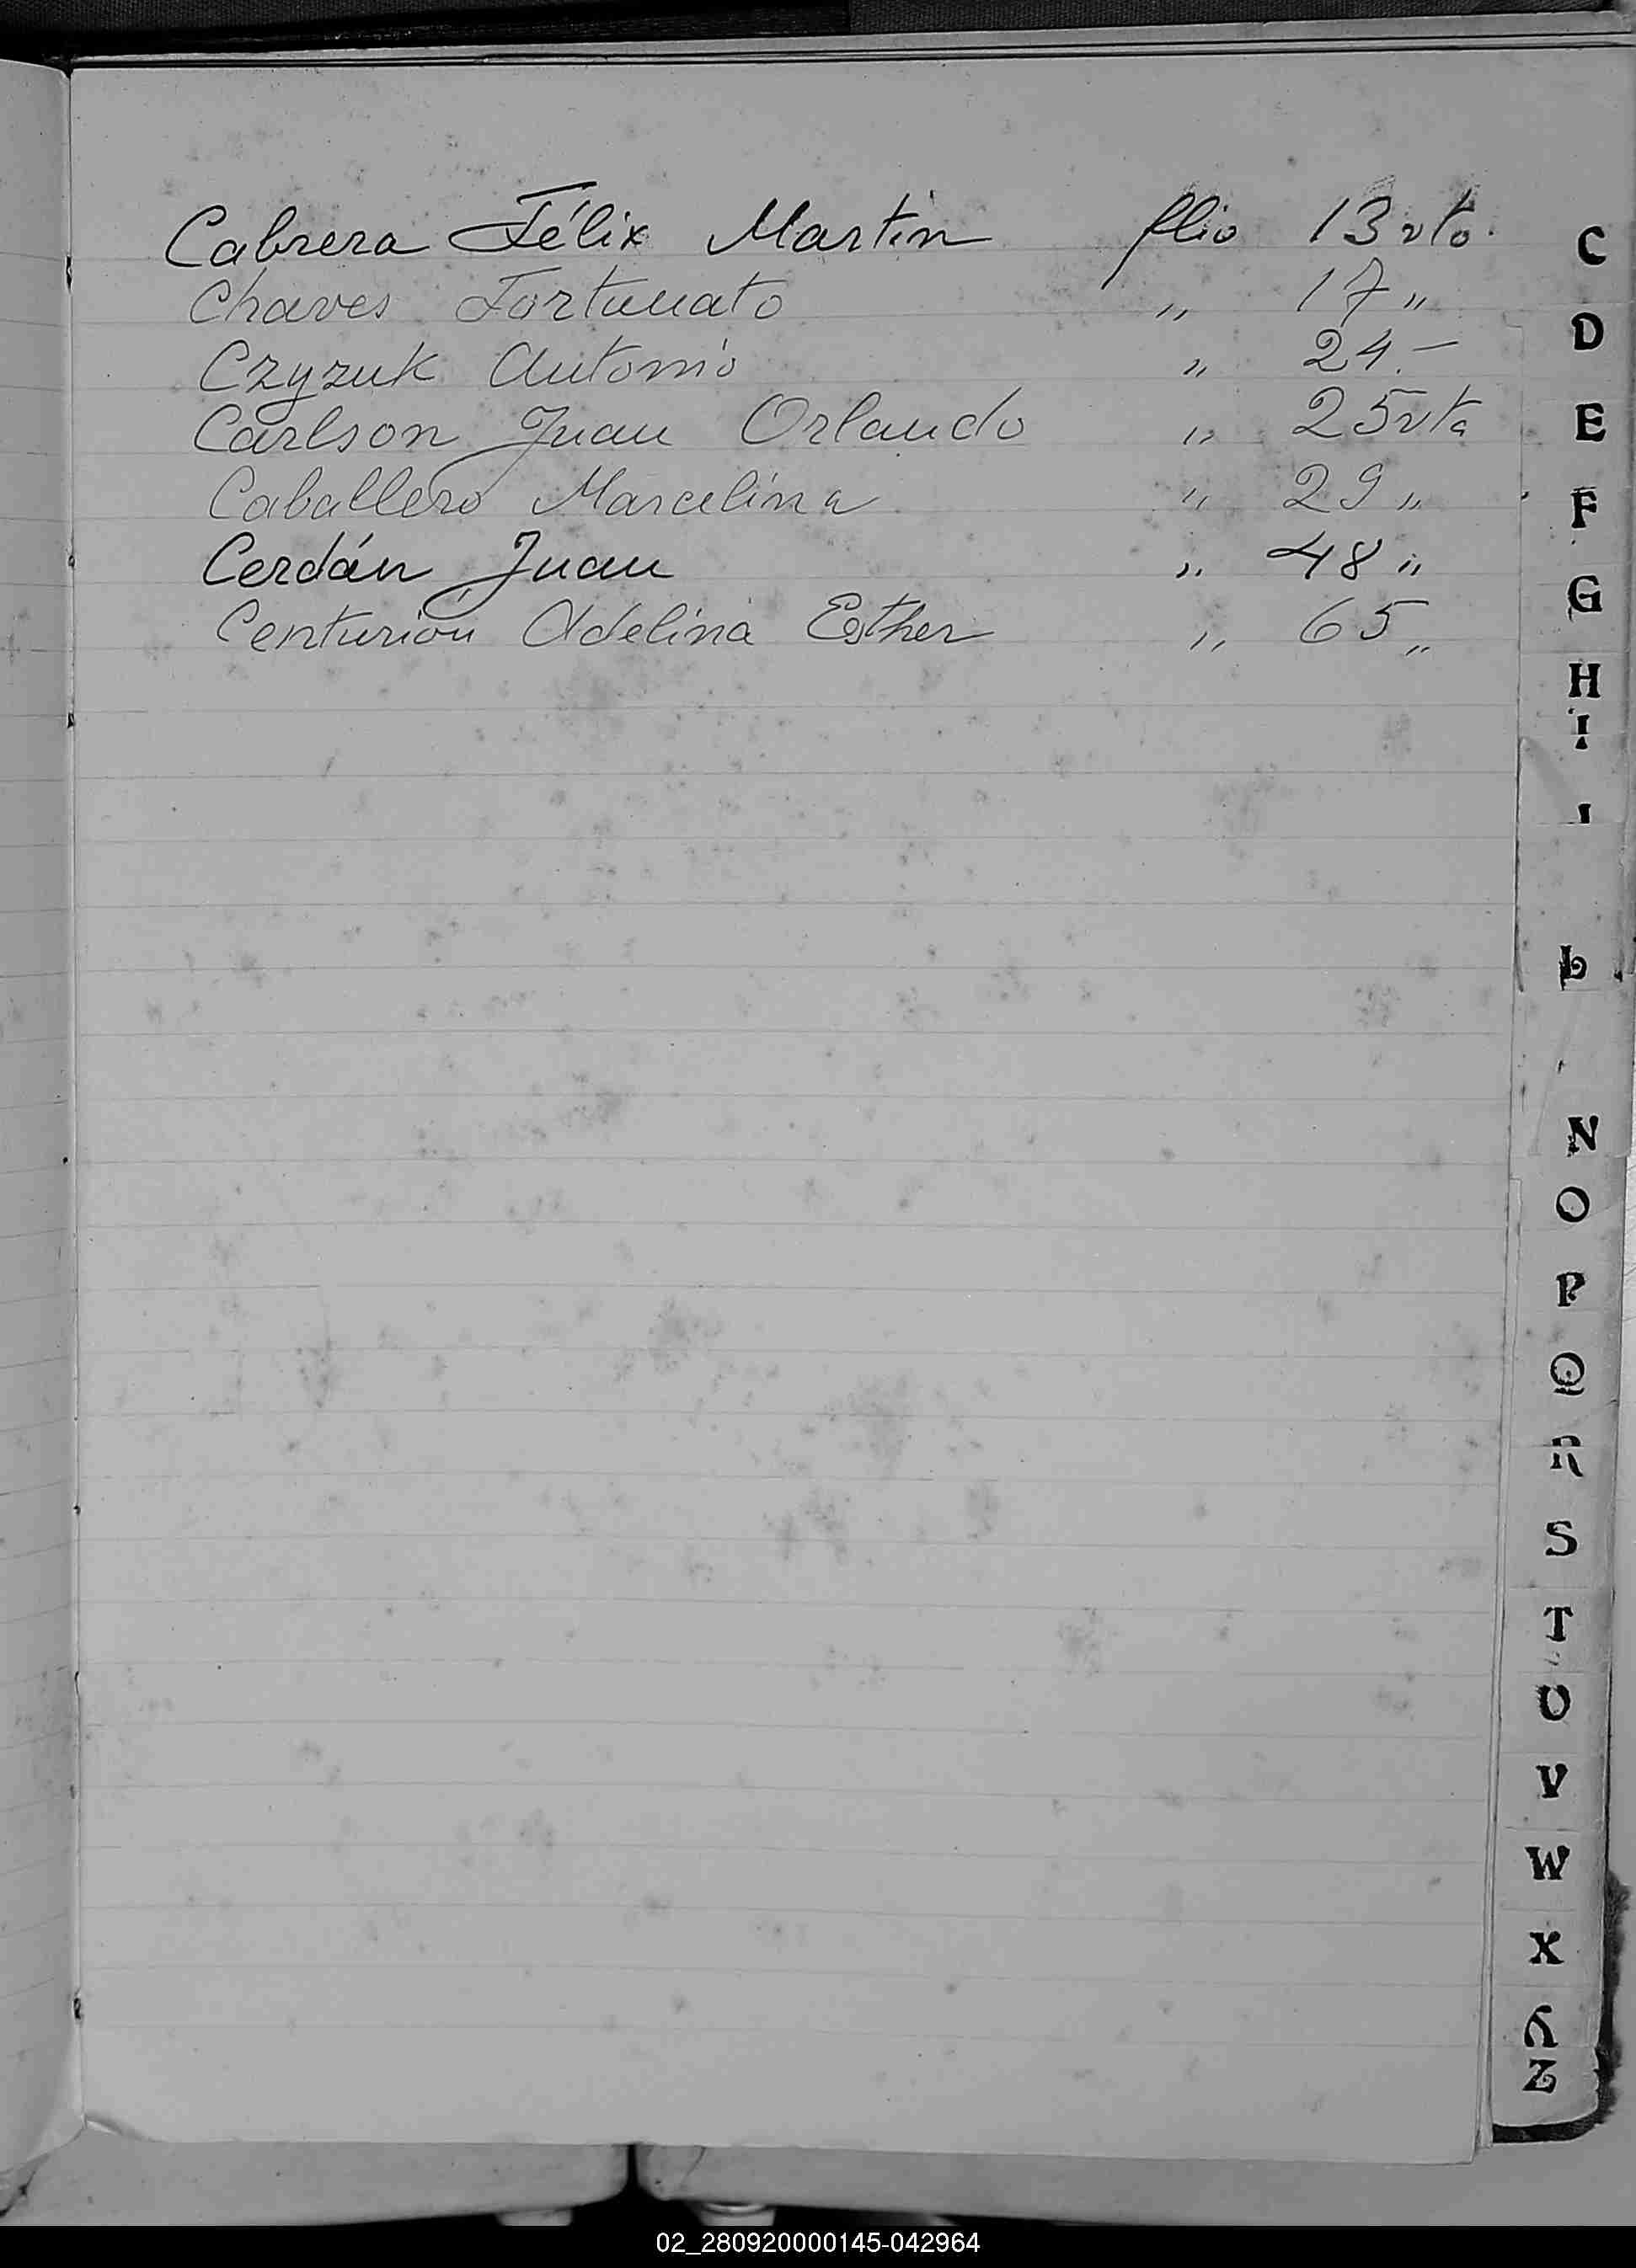 Cabrera Félix Martin flio 13 vto.
Chaves Fortunato " 17 "
Czyzuk Antonio " 24.—
Carlson Juan Orlando " 25 vta
Caballero Marcelina " 29 "
Cerdán Juan " 48 "
Centurion Adelina Esther " 65 "
C
D
E
F
G
H
I
L
N
O
P
Q
R
S
T
U
V
W
X
Y
Z
02_280920000145-042964